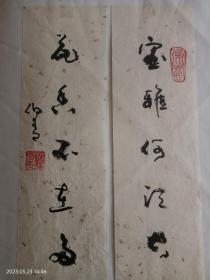 室雅何须大
花香不在多
2023.05.29 14:46